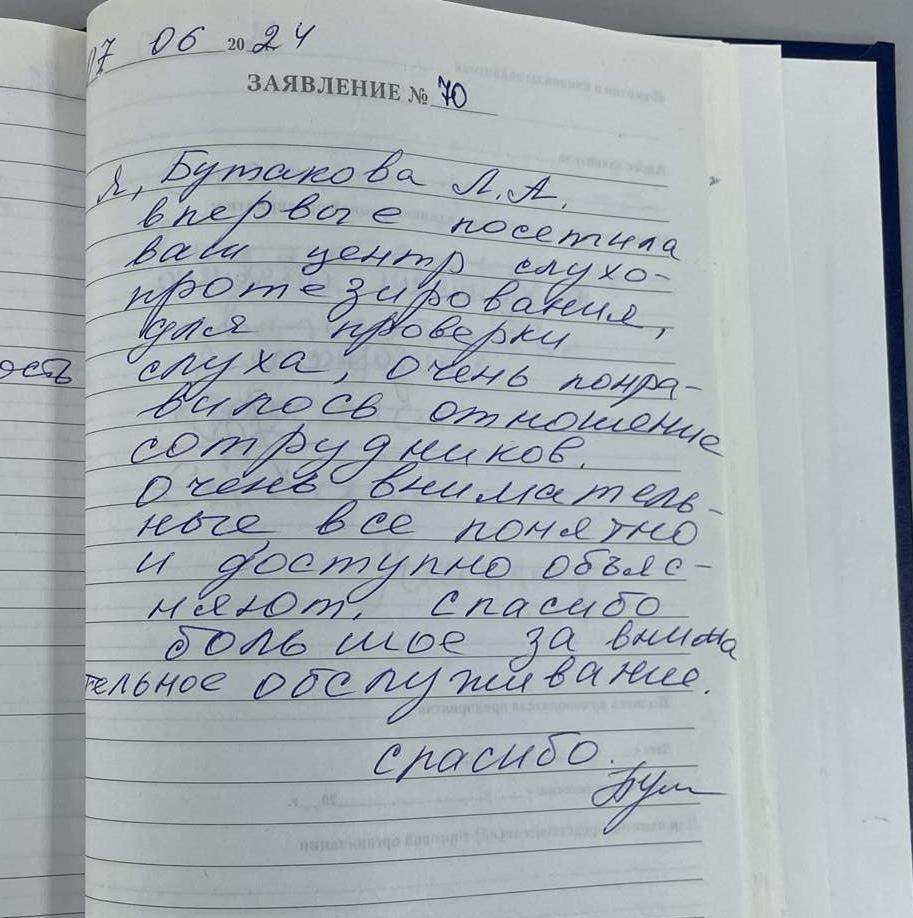 07 06 2024
ЗАЯВЛЕНИЕ № 70
Я, Бутакова Л.А.
впервые посетила
ваш центр слухо-
протезирования,
для проверки
слуха, очень понра-
вилось отношение
сотрудников.
очень вниматель-
ные, все понятно
и доступно объяс-
няют. спасибо
большое за внима
тельное обслуживание.
спасибо.
Бут
ость